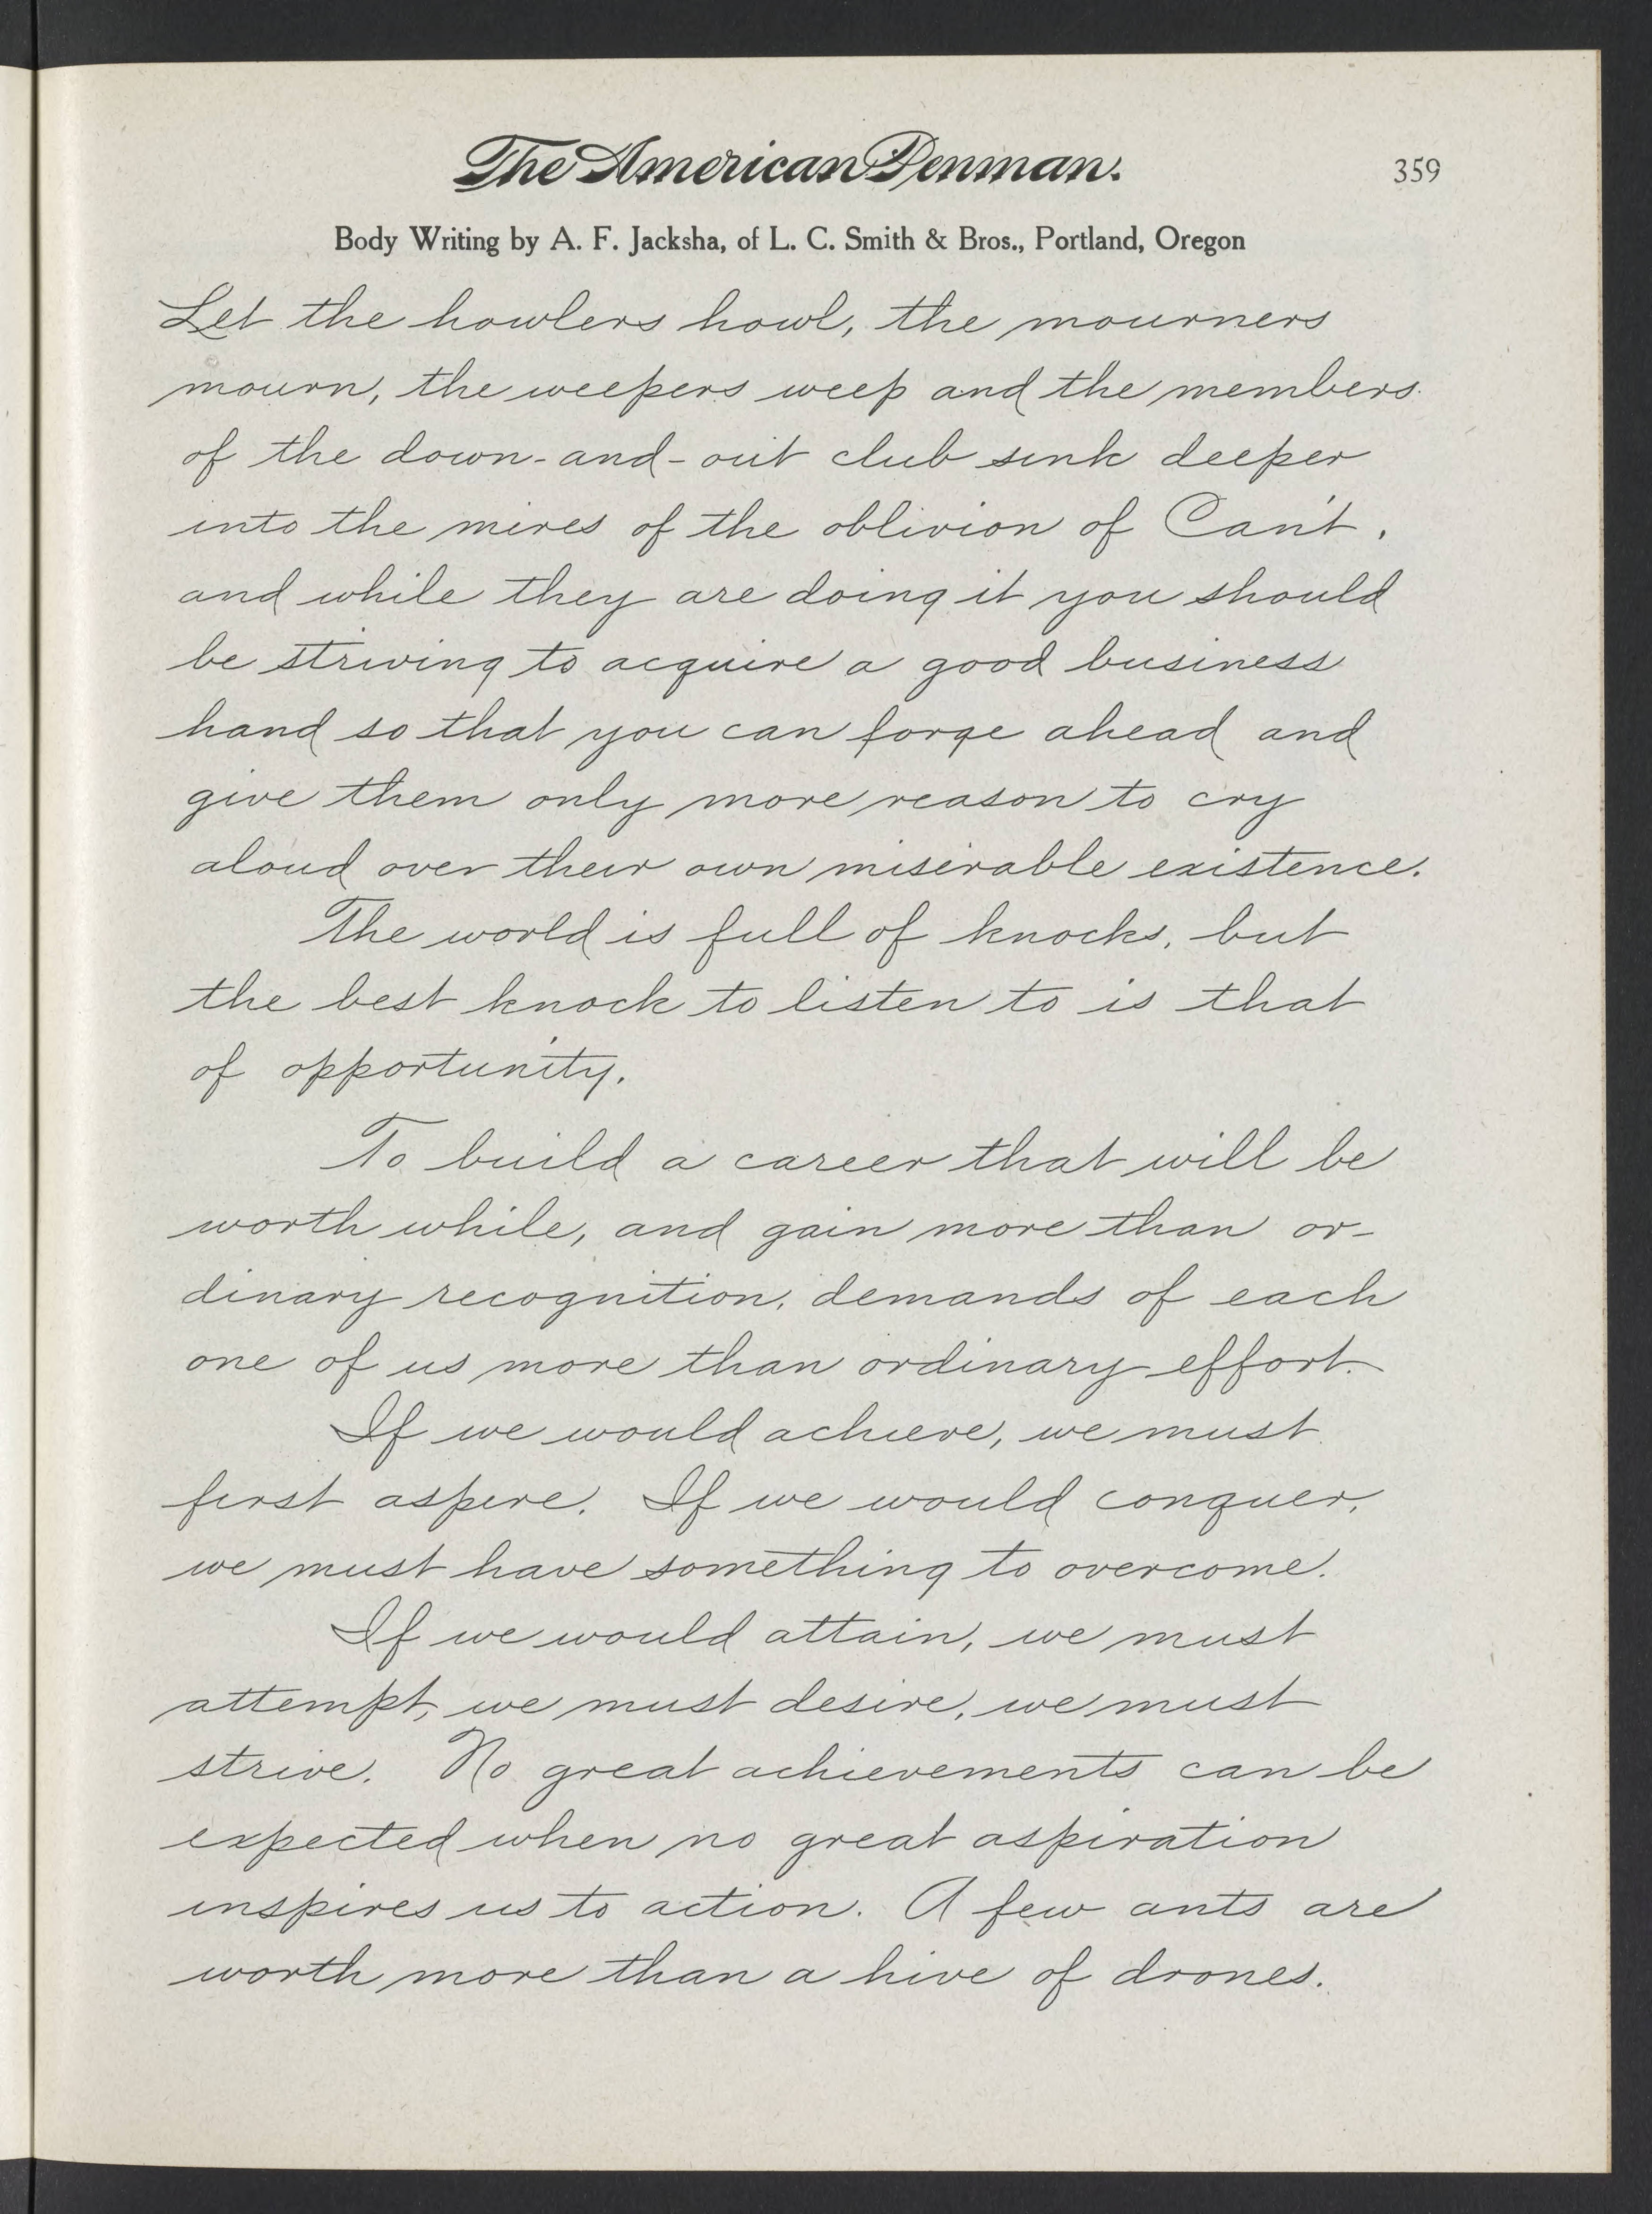 The American Penman.
359
Body Writing by A. F. Jacksha, of L. C. Smith & Bros., Portland, Oregon
Let the howlers howl, the mourners
mourn, the weepers weep and the members
of the down-and-out club sink deeper
into the mires of the oblivion of Can't,
and while they are doing it you should
be striving to acquire a good business
hand so that you can forge ahead and
give them only more reason to cry
aloud over their own miserable existence.
The world is full of knocks, but
the best knock to listen to is that
of opportunity.
To build a career that will be
worth while, and gain more than or-
dinary recognition, demands of each
one of us more than ordinary effort.
If we would achieve, we must
first aspire. If we would conquer,
we must have something to overcome.
If we would attain, we must
attempt, we must desire, we must
strive. No great achievements can be
expected when no great aspiration
inspires us to action. A few ants are
worth more than a hive of drones.